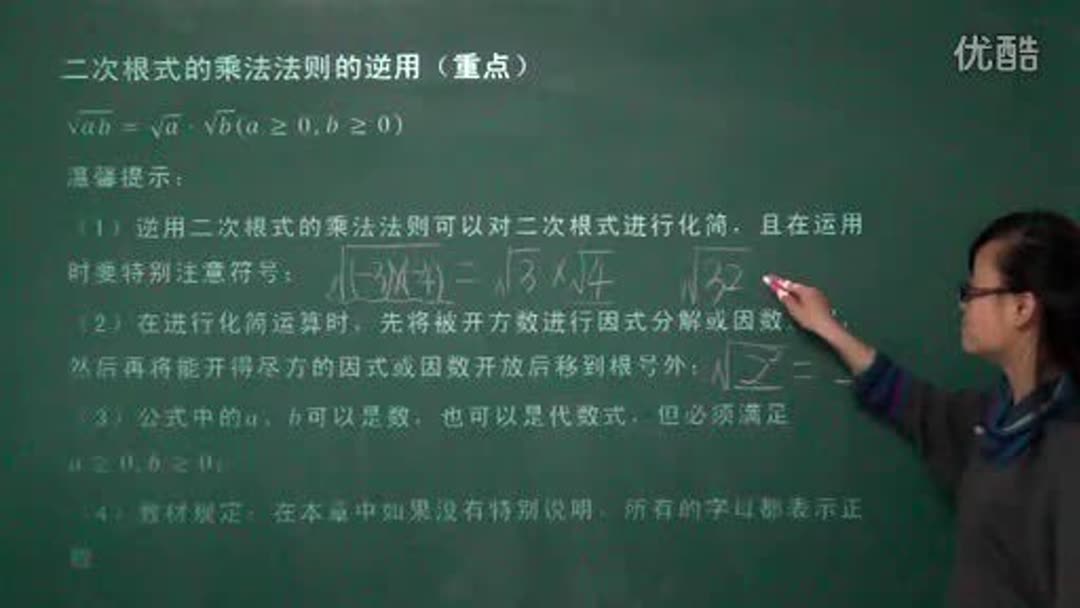 优酷
二次根式的乘法法则的逆用（重点）
√ab = √a · √b(a ≥ 0, b ≥ 0)
温馨提示：
（1）逆用二次根式的乘法法则可以对二次根式进行化简，且在运用
时要特别注意符号；
√(-3)(-4) = √3 × √4 √32
（2）在进行化简运算时，先将被开方数进行因式分解或因数
然后再将能开得尽方的因式或因数开放后移到根号外；
（3）公式中的a、b可以是数，也可以是代数式，但必须满足
a ≥ 0, b ≥ 0；
（4）教材规定：在本章中如果没有特别说明，所有的字母都表示正